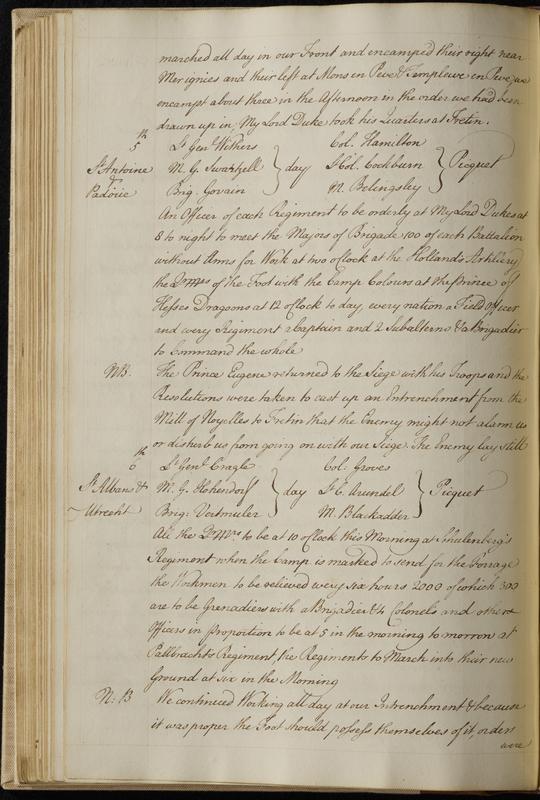 marched all day in our Front and encamped their right near
Merignies and their left at Mons en Peve & Templeuve en Peve, we
encampt about three in the Afternoon in the order we had been
drawn up in, My Lord Duke took his Quarters at Fretin.
5th Lt Genl Withers Col. Hamilton
St Antoine & Padoüe M. G. Swartzell day Lt Col. Cockburn Picquet
Brig. Govain M. Belingsley
An Officer of each Regiment to be orderly at My Lord Dukes at
8 to night to meet the Majors of Brigade 100 of each Battalion
without Arms for Work at two o'Clock at the Hollands Artillery
the Qr Mrs of the Foot with the Camp Colours at the Prince of
Hesses Dragoons at 12 o'Clock to day every nation a Field Officer
and every Regiment a Captain and 2 Subalterns & a Brigadier
to Command the whole
NB. The Prince Eugene returned to the Siege with his Troops and the
Resolutions were taken to cast up an Entrenchment from the
Mill of Noyelles to Fretin that the Enemy might not alarm us
or disturb us from going on with our Siege. The Enemy lay still
6th Lt Genl Cragle Col: Groves
St Albans & M. G. Hohendorf day Lt C. Arundel Picquet
Utrecht Brig: Vertmuler M. Blackadder
All the Qr Mrs to be at 10 o'Clock this Morning at Schulenberg's
Regiment when the Camp is marked to send for the Forrage
the Workmen to be relieved every six hours 2000 of which 300
are to be Grenadiers with a Brigadier & 4 Colonels and others
Officers in proportion to be at 5 in the morning to morrow at
Pallbrachts Regiment, the Regiments to March into their new
Ground at six in the Morning
N: B We continued Working all day at our Intrenchment & because
it was proper the Foot should possess themselves of it, orders
were